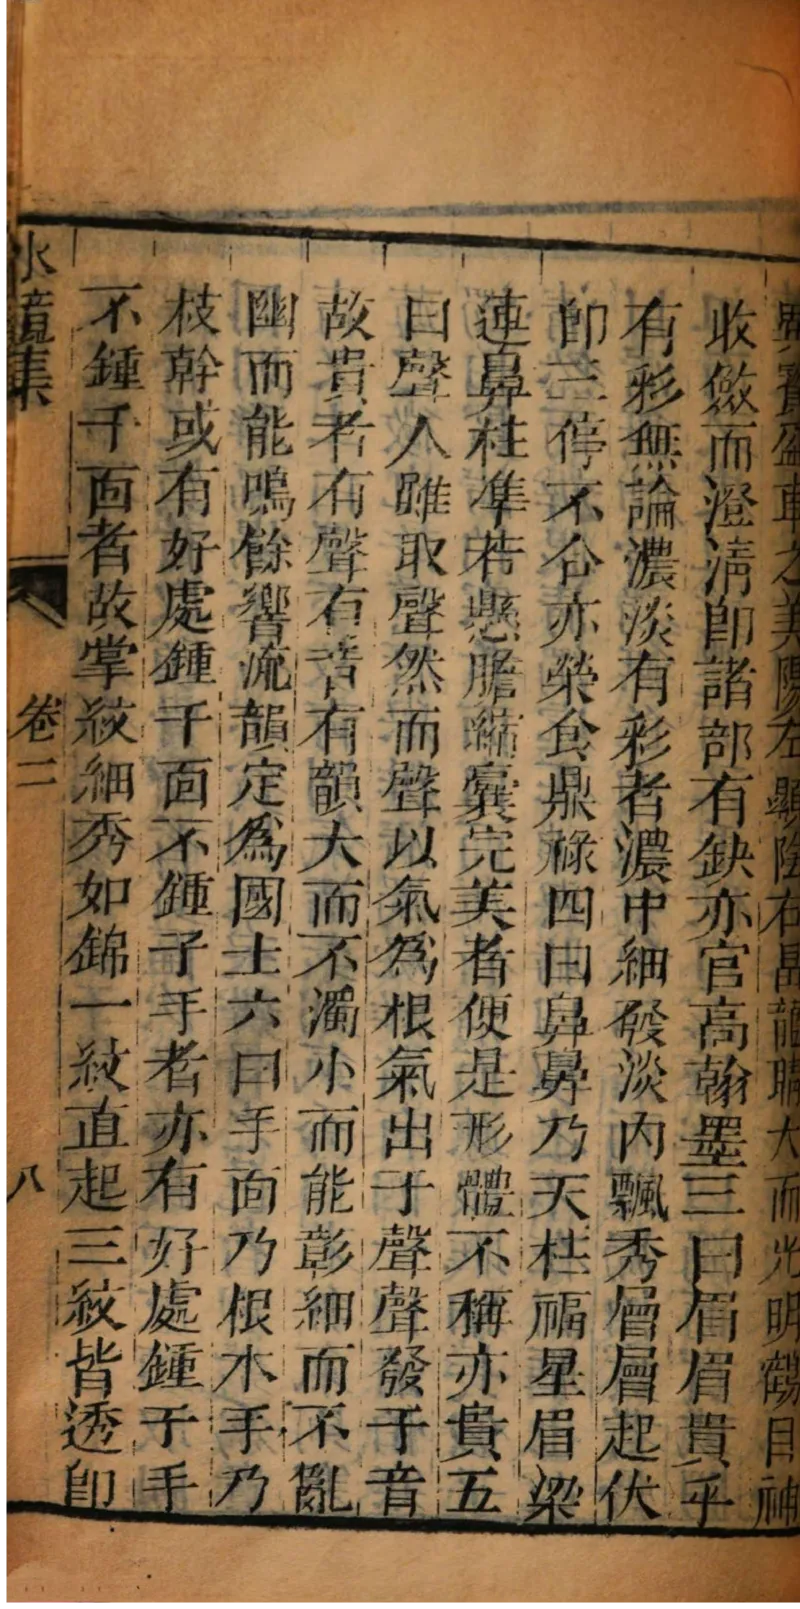 盈車之美陽左顯陰右昌龍睛大而光明鶴目神
收斂而澄清即諸部有缺亦官高翰墨三曰眉眉貴乎
有彩無論濃淡有彩者濃中細發淡內飄秀層層起伏
即三停不合亦榮食鼎祿四曰鼻鼻乃天柱福星眉梁
連鼻柱準若懸膽縮囊完美者便是形體不稱亦貴五
曰聲人雖取聲然而聲以氣為根氣出于聲聲發于音
故貴者有聲有音有韻大而不濁小而能彰細而不亂
幽而能鳴餘響流韻定為國士六曰手面乃根木手乃
枝幹或有好處鍾千面不鍾子手者亦有好處鍾于手
不鍾千面者故掌紋細秀如錦一紋直起三紋皆透即
水鏡集 卷二 八